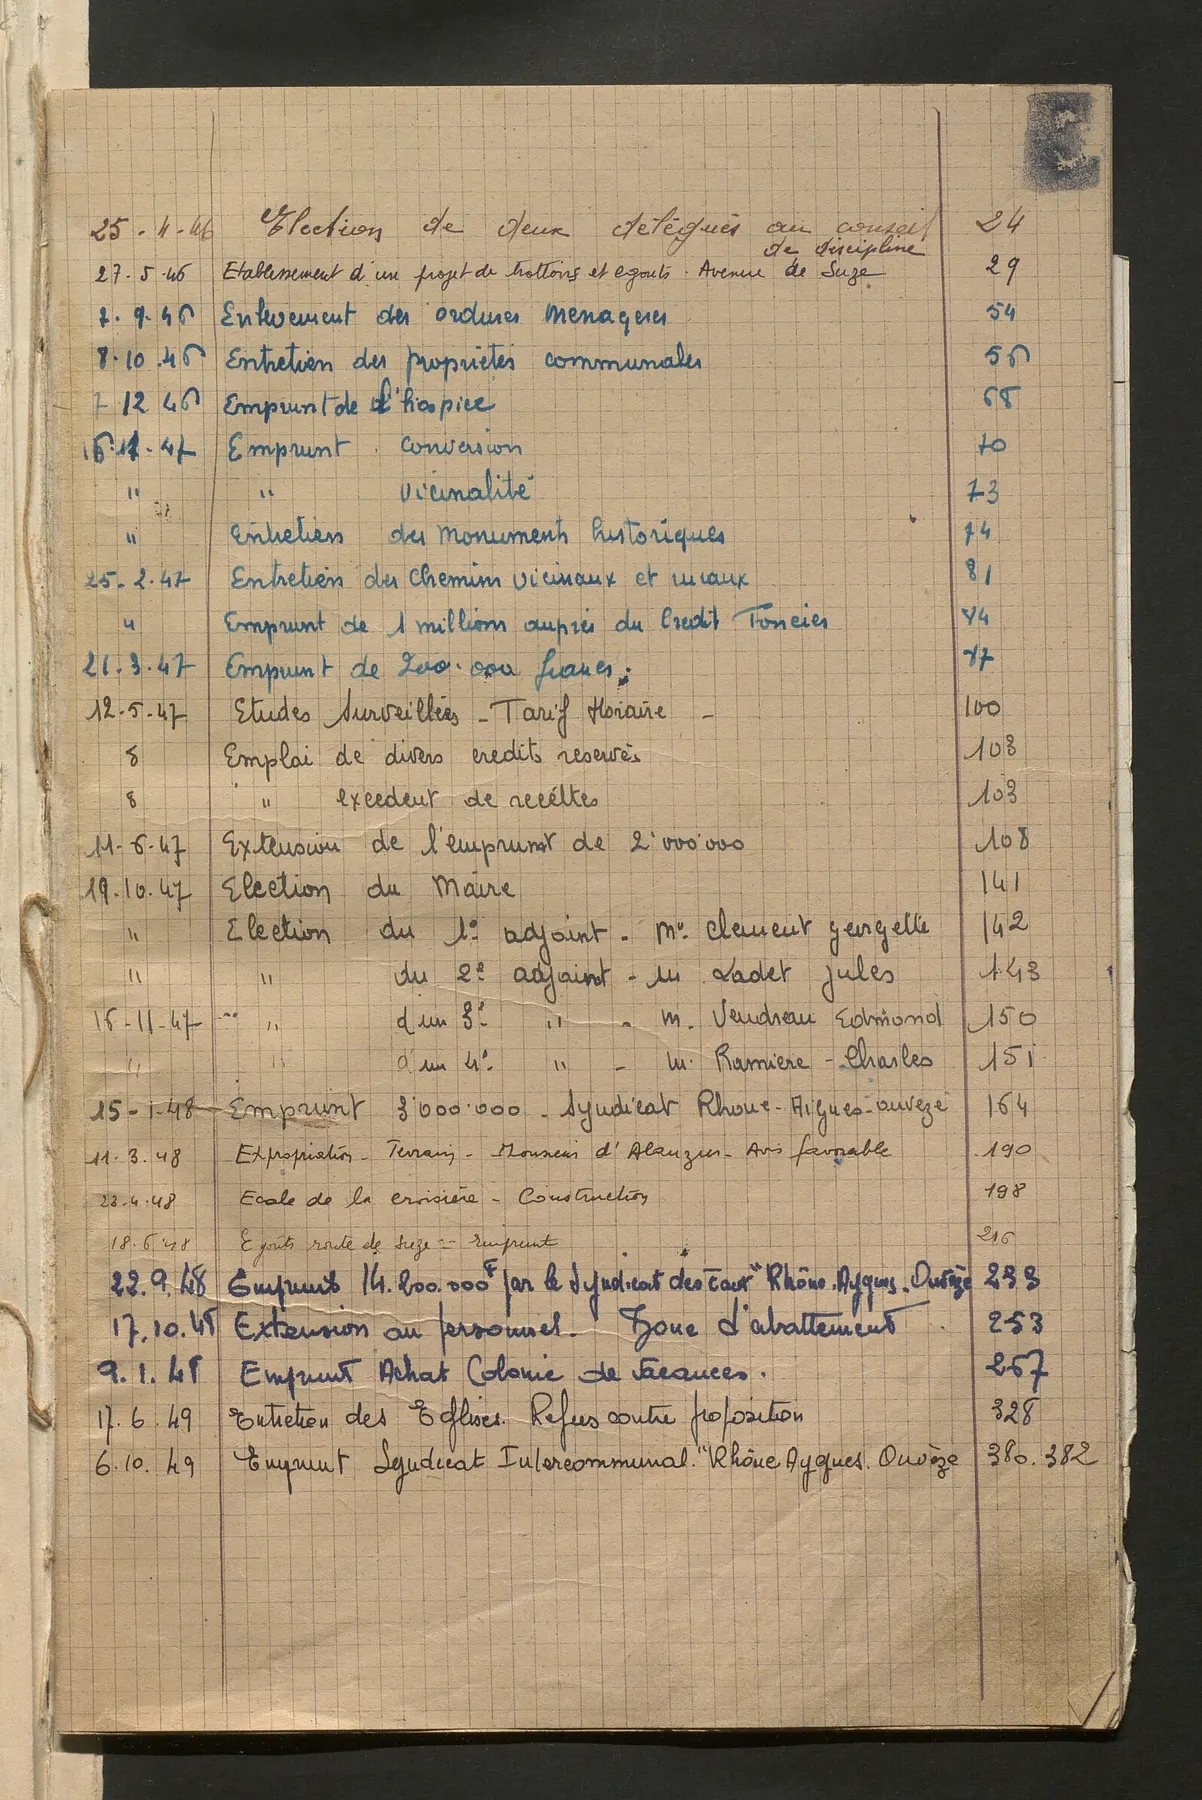 E
25-4-46 Election de deux délégués au conseil 24
de discipline
27-5-46 Etablissement d'un projet de trottoirs et egouts. Avenue de Suze 29
7-9-46 Enlevement des ordures menageres 54
8-10-46 Entretien des propriétés communales 56
7 12 46 Emprunt de l'hospice 68
47 Emprunt conversion 70
" " vicinalité 73
" Entretien des Monuments historiques 74
25-2-47 Entretien des Chemins vicinaux et ruraux 81
" Emprunt de 1 millions auprès du Credit Foncier 84
21-3-47 Emprunt de 200.000 francs. 87
12-5-47 Etudes Surveillées - Tarif Horaire - 100
8 Emploi de divers credits reservés 103
8 " excedent de recéttes 103
11-6-47 Extension de l'emprunt de 2'000'000 108
19.10.47 Election du Maire 141
" Election du 1e adjoint - Mr. Clement 142
" " du 2e adjoint - M Ladet Jules 143
16-11-47 " d'un 3e " - M. Vendreau Edmond 150
" " d'un 4e " - M. Ramiere - Charles 151
15-1-48 Emprunt 3'000'000 - Syndicat Rhone-Aigues-ouveze 164
11.3.48 Expropriation - Terrain - Monsieur d'Alauzier - Avis favorable 190
23.4.48 Ecole de la croisière - Construction 198
18.6.48 Egouts route de Suze - Emprunt 216
22.9.48 Emprunt 14.200.000F par le Syndicat des Eaux "Rhône.Aygues.Ouvèze 233
17.10.48 Extension au personnel. Zone d'abattement. 253
9.1.48 Emprunt Achat Colonie de Vacances. 267
17.6.49 Entretien des Eglises. Refus contre proposition 328
6.10.49 Emprunt Syndicat Intercommunal. "Rhône Aygues. Ouvèze 380.382